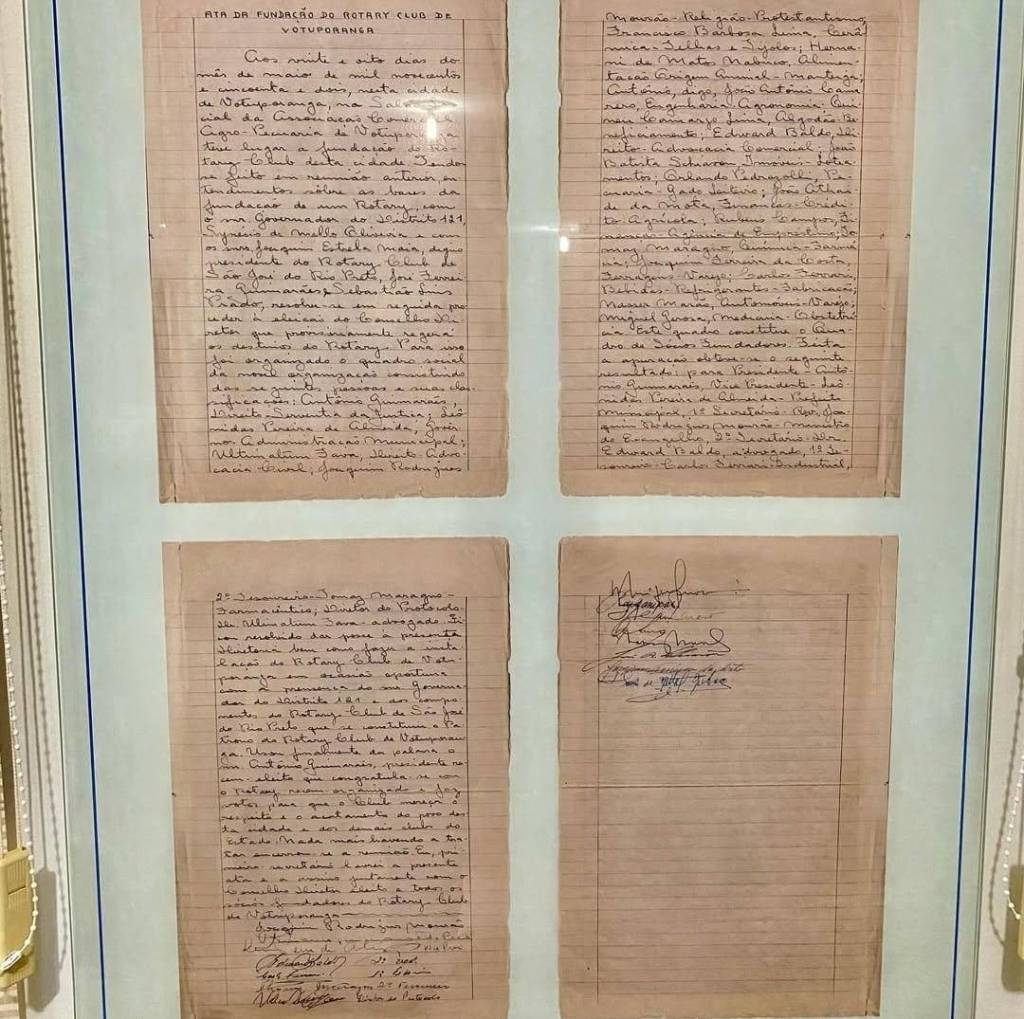 ATA DA FUNDAÇÃO DO ROTARY CLUB DE
VOTUPORANGA
Aos vinte e oito dias do
mês de maio de mil novecentos
e cincoenta e dois, nesta cidade
de Votuporanga, na Salão so-
cial da Associacao Comercial
Agro-Pecuaria de Votuporanga
teve lugar a fundacão do Ro-
tary Club desta cidade. Tendo
se feito em reunião anterior, en-
tendimentos sôbre as bases da
fundacão de um Rotary, com
o snr. Governador do Distrito 121,
Synesio de Mello Oliveira e com
os snrs. Joaquim Estrela Maia, digno
presidente do Rotary Club de
São José do Rio Preto, José Ferrei-
ra Guimarães e Sebastião Luis
Prado, resolve-se em seguida pro-
ceder à eleicão do Conselho Di-
retor que provisoriamente regerá
os destinos do Rotary. Para isso
foi organizado o quadro social
da novel organizacão consistindo
das seguintes pessoas e suas clas-
sificacões: António Guimarães,
Direito-Serventia da Justica; Leô-
nidas Pereira de Almeida, Govêr-
no-Administracão Municipal;
Ultimatum Fava, Direito-Advo-
cacia Civil; Joaquim Rodrigues
Mourão-Religião-Protestantismo,
Francisco Barbosa Lima, Cerâ-
mica-Telhas e Tijolos; Herna-
ni de Matos Nabuco, Alimen-
tacão Origem Animal-Manteiga;
António, digo, João António Cam-
rero, Engenharia-Agronomia-
Camargo Lima, Algodão-Be-
neficiamento; Edward Baldo, Di-
reito-Advocacia Comercial; João
Batista Schiavon, Imóveis-Lotea-
mentos; Orlando Pedrazolli, Pe-
cuaria-Gado Leiteiro; João Athaí-
de da Mota, Financas-Crédi-
to Agrícola; Rubens Campos, Fi-
nancas-Agência de Empréstimo; To-
maz Maragno, Quimica-Farmá-
cia; Joaquim Ferreira da Costa,
Ferragens-Varejo; Carlos Ferrari,
Bebidas-Refrigerantes-Fabricacão;
Nasser Marão, Automóveis-Varejo;
Miguel Gerosa, Medicina-Obstetrí-
cia. Este quadro constitue o Qua-
dro de Sócios Fundadores. Feita
a apuracão obteve-se o seguinte
resultado: para Presidente-Antó-
nio Guimarães, Vice Presidente-Leô-
nidas Pereira de Almeida-Prefeito
Municipal, 1º Secretário-Rev. Joa-
quim Rodrigues Mourão-Ministro
do Evangelho, 2º Secretário-Dr.
Edward Baldo, advogado, 1º Te-
soureiro-Carlos Ferrari-Industrial,
2º Tesoureiro-Tomaz Maragno-
Farmacêutico; Diretor do Protocolo-
Dr. Ultimatum Fava-advogado. Fi-
cou resolvido dar posse à presente
Diretoria bem como fazer a insta-
lacão do Rotary Club de Votu-
poranga em ocasião oportuna
com a presenca do snr. Governa-
dor do Distrito 121 e dos compo-
nentes do Rotary Club de São José
do Rio Preto que se constituiu o Pa-
trono do Rotary Club de Votuporan-
ga. Usou finalmente da palavra o
snr. António Guimarães, presidente re-
cem-eleito que congratula-se com
o Rotary recem-organizado e faz
votos para que o Club mereca o
respeito e o acatamento do povo des-
ta cidade e dos demais clubs do
Estado. Nada mais havendo a tra-
tar encerrou-se a reunião. Eu, pri-
meiro secretário lavrei a presente
ata e a assino juntamente com o
Conselho Diretor eleito e todos os
sócios fundadores do Rotary Club
de Votuporanga
Joaquim Rodrigues Mourão
2º Secr.
1º Tesoureiro
Maragno 2º Tesoureiro
Diretor do Protocolo